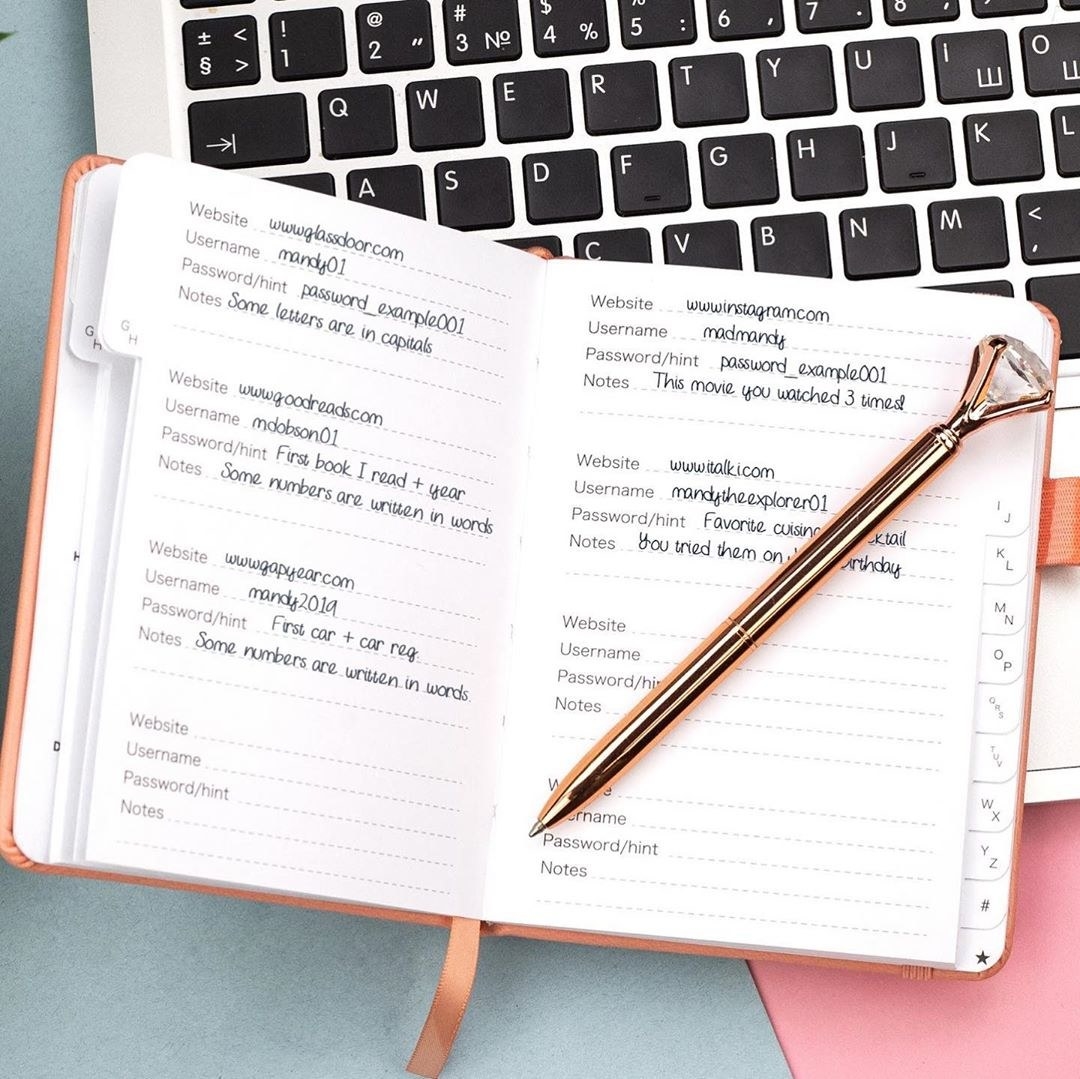 ± <
§ >
!
1
@
2 "
#
3 №
$
4 %
%
5 :
6 ,
7 .
8 ;
Q W E R T Y U I Ш O
A S D F G H J K L
C V B N M <
,
Website www.glassdoor.com
Username mandy01
Password/hint password_example001
Notes Some letters are in capitals
Website www.goodreads.com
Username mdobson01
Password/hint First book I read + year
Notes Some numbers are written in words
Website www.gapyear.com
Username mandy2019
Password/hint First car + car reg
Notes Some numbers are written in words
Website
Username
Password/hint
Notes
G H
G H
H
D
Website www.instagram.com
Username madmandy
Password/hint password_example001
Notes This movie you watched 3 times!
Website www.italki.com
Username mandytheexplorer01
Password/hint Favorite
Notes You tried them on
Website
Username
Notes
Password/hint
Notes
I J
K L
M N
O P
Q R S
T U V
W X
Y Z
#